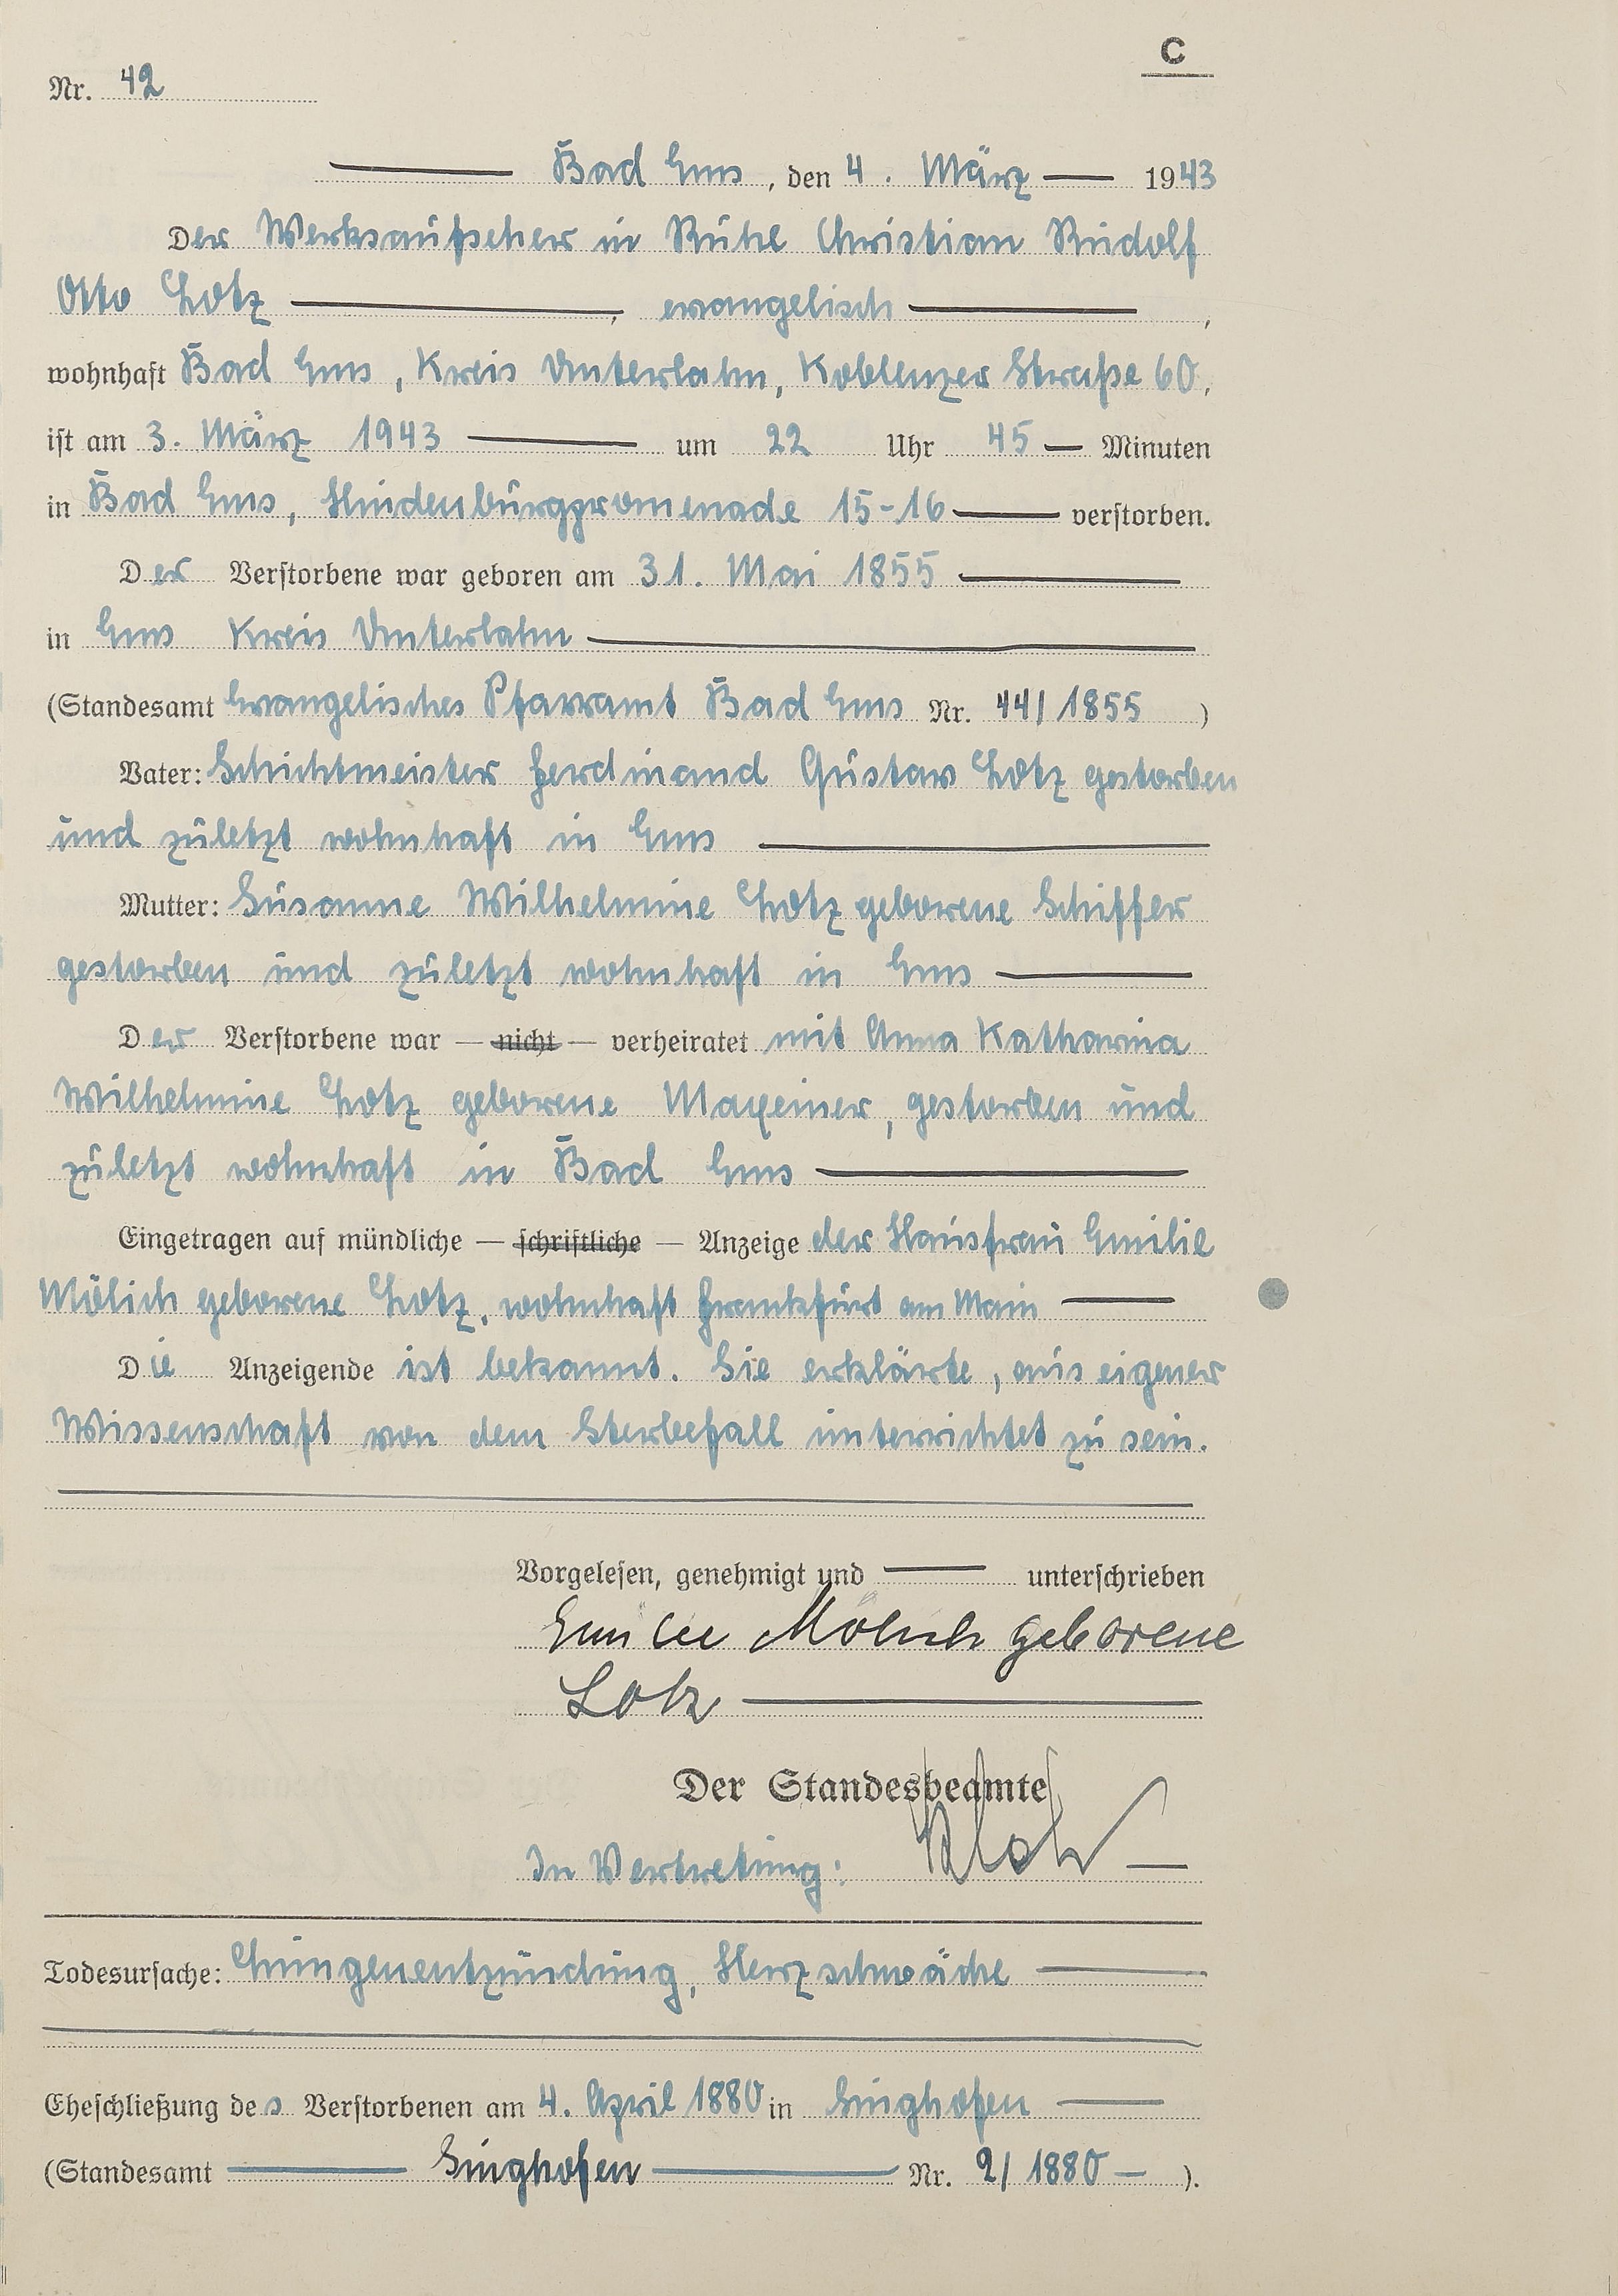 C
Nr. 42
Bad Ems, den 4. März 1943
Der Werksaufseher in Ruhe Christian Rudolf
Otto Lotz, evangelisch,
wohnhaft Bad Ems, Kreis Unterlahn, Koblenzer Straße 60,
ist am 3. März 1943 um 22 Uhr 45 Minuten
in Bad Ems, Hindenburgpromenade 15-16 verstorben.
Der Verstorbene war geboren am 31. Mai 1855
in Ems Kreis Unterlahn
(Standesamt Evangelisches Pfarramt Bad Ems Nr. 44/1855)
Vater: Schichtmeister Ferdinand Gustav Lotz gestorben
und zuletzt wohnhaft in Ems
Mutter: Susanne Wilhelmine Lotz geborene Schiffer
gestorben und zuletzt wohnhaft in Ems
Der Verstorbene war — nicht — verheiratet mit Anna Katharina
Wilhelmine Lotz geborene Maxeiner, gestorben und
zuletzt wohnhaft in Bad Ems
Eingetragen auf mündliche — schriftliche — Anzeige der Hausfrau Emilie
Mölich geborene Lotz, wohnhaft Frankfurt am Main
Die Anzeigende ist bekannt. Sie erklärte, aus eigener
Wissenschaft von dem Sterbefall unterrichtet zu sein.
Vorgelesen, genehmigt und unterschrieben
Emilie Mölich geborene
Lotz
Der Standesbeamte
In Vertretung:
Todesursache: Lungenentzündung, Herzschwäche
Eheschließung des Verstorbenen am 4. April 1880 in Singhofen
(Standesamt Singhofen Nr. 2/1880).